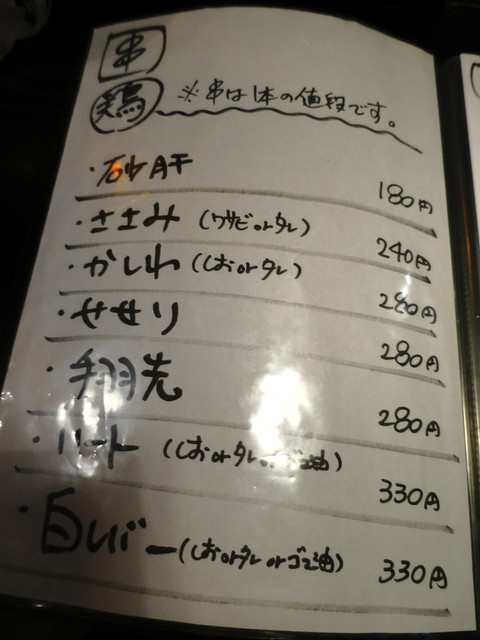 串
鶏 ※串は1本の値段です。
・砂肝 180円
・ささみ (ワサビorタレ) 240円
・かしわ (しおorタレ) 280円
・せせり 280円
・手羽先 280円
・ハート (しおorタレ 油) 330円
・白レバー (しおorタレorゴマ油) 330円